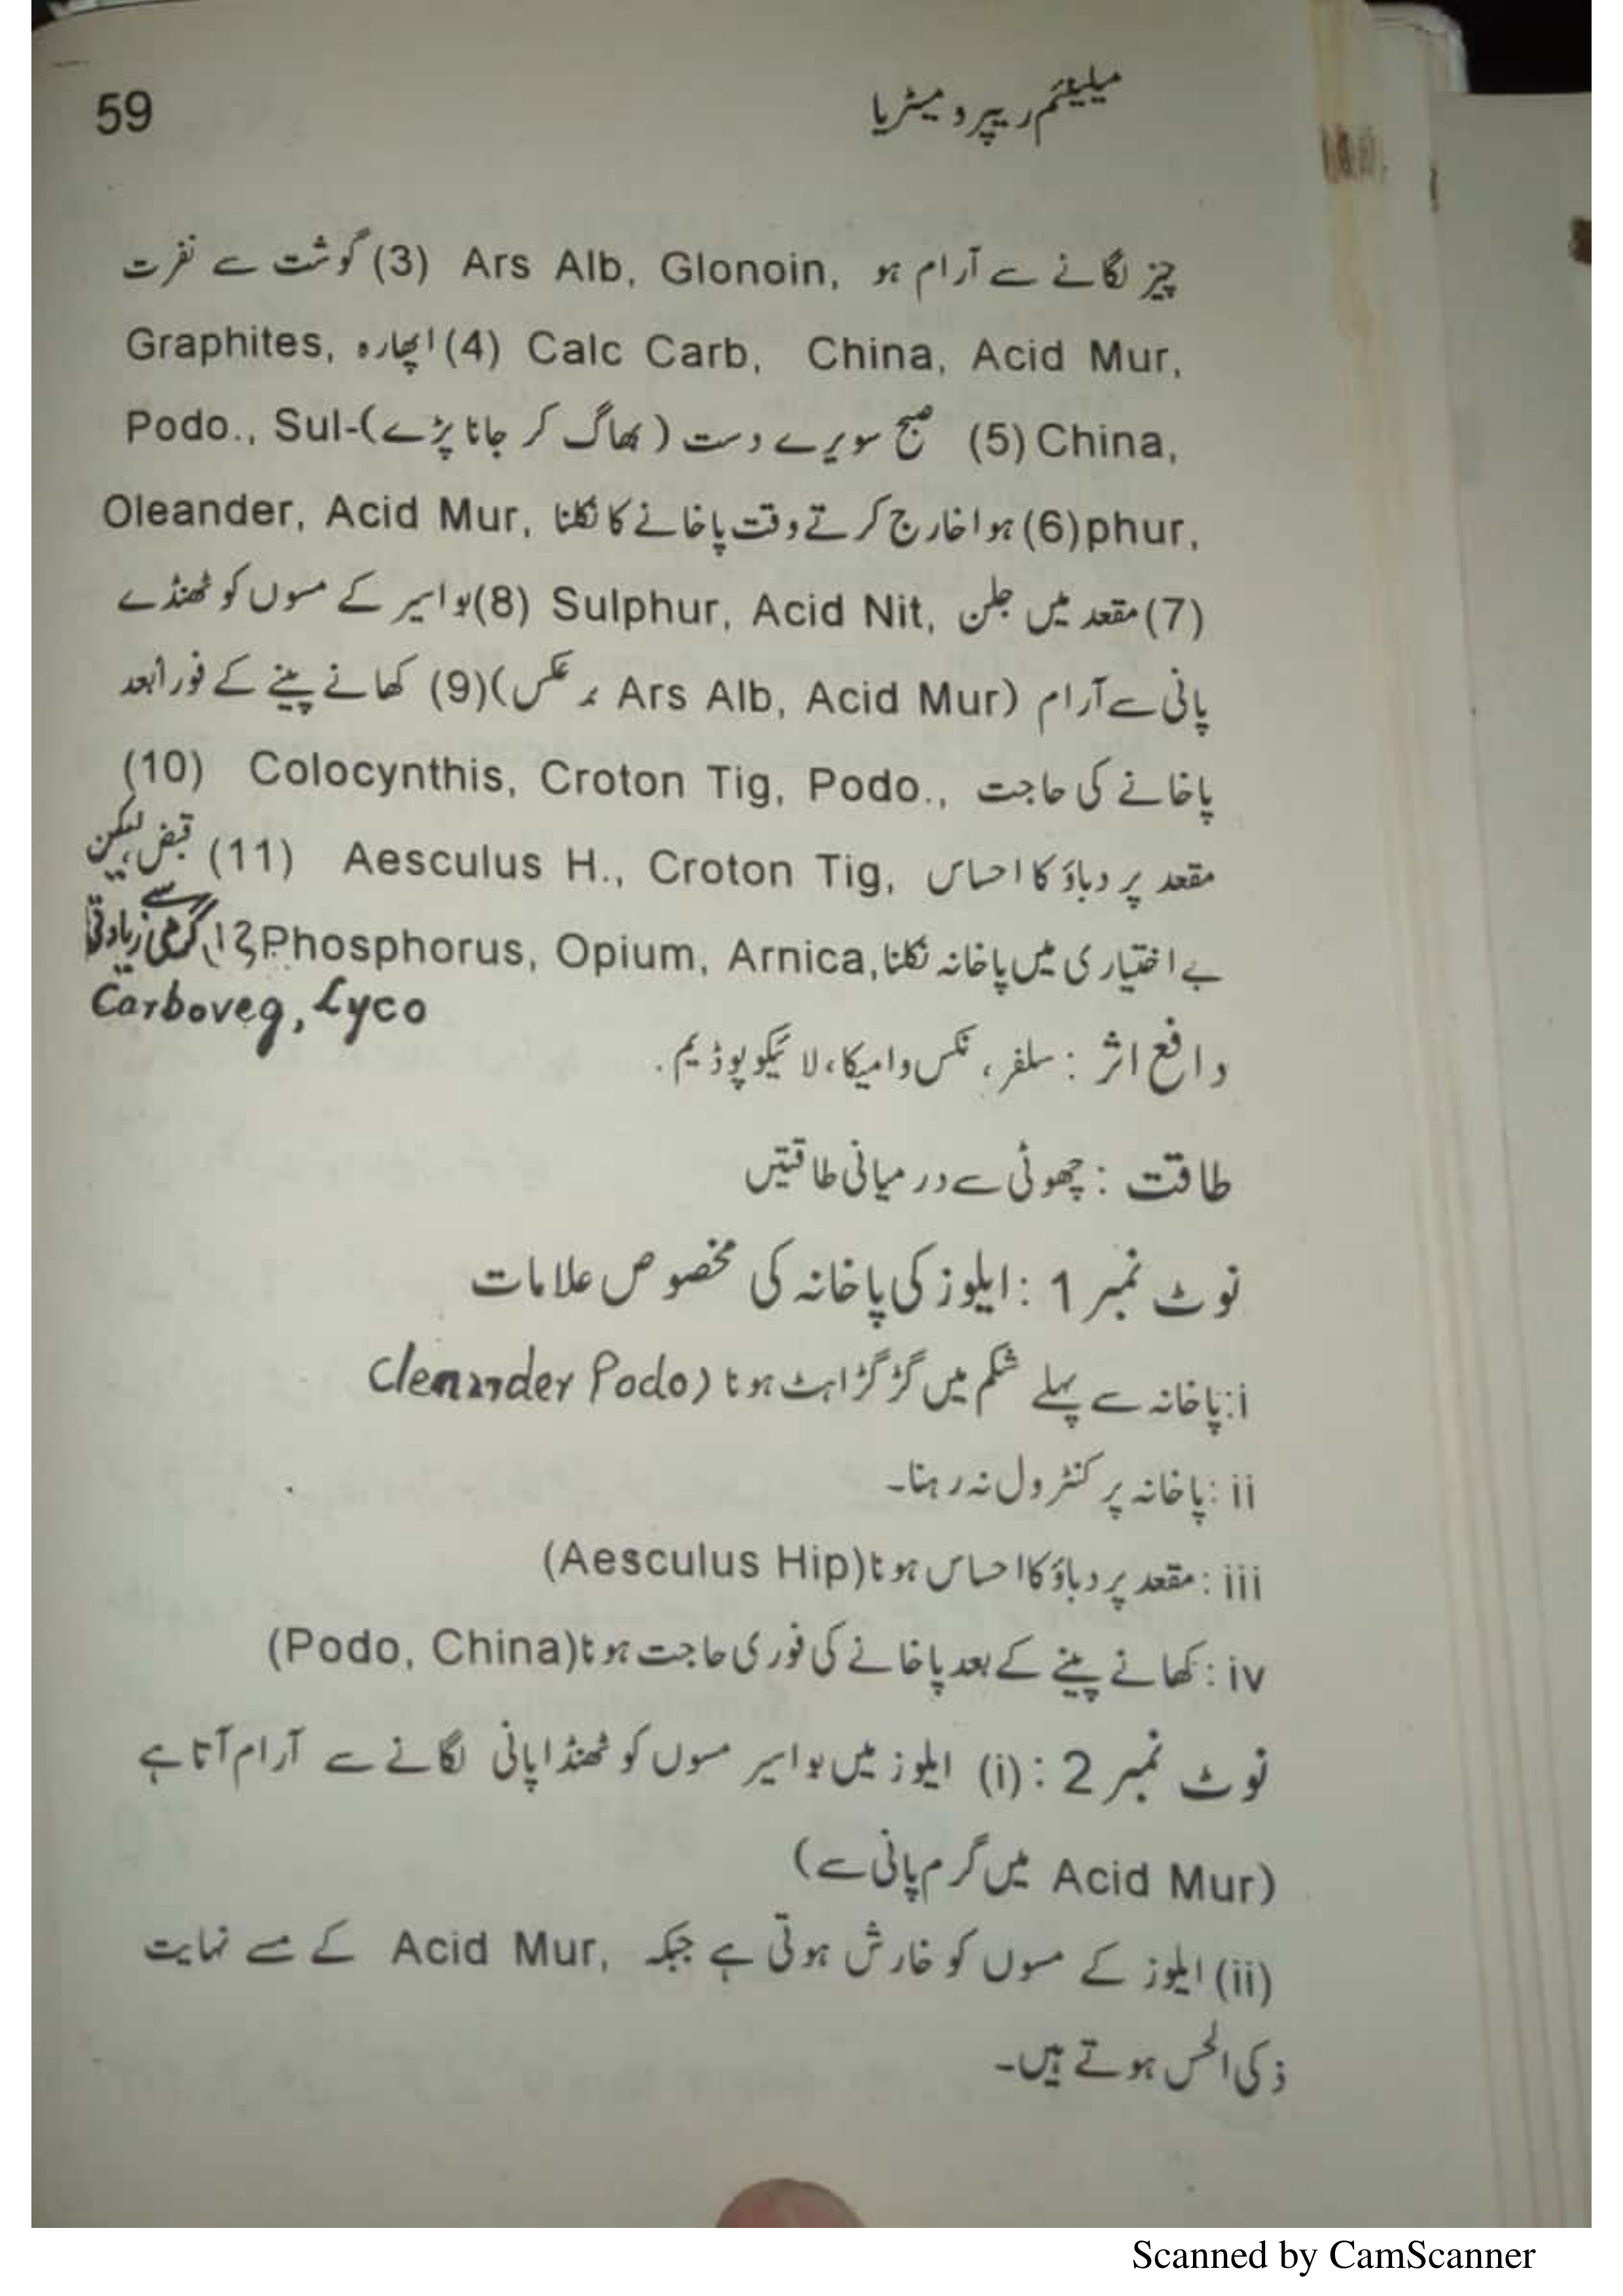 میلینئم ریپرو میٹریا 59
چیز لگانے سے آرام ہو Ars Alb, Glonoin, (3) گوشت سے نفرت
Graphites, اپھارہ (4) Calc Carb, China, Acid Mur,
Podo., Sul-(صبح سویرے دست (بھاگ کر جانا پڑے (5) China,
Oleander, Acid Mur, ہوا خارج کرتے وقت پاخانے کا نکلنا (6) phur,
(7) مقعد میں جلن Sulphur, Acid Nit, (8) بواسیر کے مسوں کو ٹھنڈے
پانی سے آرام (Ars Alb, Acid Mur بر عکس) (9) کھانے پینے کے فوراً بعد
پاخانے کی حاجت Colocynthis, Croton Tig, Podo., (10)
مقعد پر دباؤ کا احساس Aesculus H., Croton Tig, (11) قبض لیکن
بے اختیاری میں پاخانہ نکلنا Phosphorus, Opium, Arnica, 12 گرمی سے زیادتی
Carboveg, Lyco
دافع اثر : سلفر، نکس وامیکا، لائیکوپوڈیم.
طاقت : چھوٹی سے درمیانی طاقتیں
نوٹ نمبر 1 : ایلوز کی پاخانہ کی مخصوص علامات
i: پاخانہ سے پہلے شکم میں گڑگڑاہٹ ہونا (Podo
ii : پاخانہ پر کنٹرول نہ رہنا۔
iii : مقعد پر دباؤ کا احساس ہونا (Aesculus Hip)
iv : کھانے پینے کے بعد پاخانے کی فوری حاجت ہونا (Podo, China)
نوٹ نمبر 2 : (i) ایلوز میں بواسیر مسوں کو ٹھنڈا پانی لگانے سے آرام آتا ہے
(Acid Mur میں گرم پانی سے)
(ii) ایلوز کے مسوں کو خارش ہوتی ہے جبکہ Acid Mur, کے مسے نہایت
ذکی الحس ہوتے ہیں۔
Scanned by CamScanner